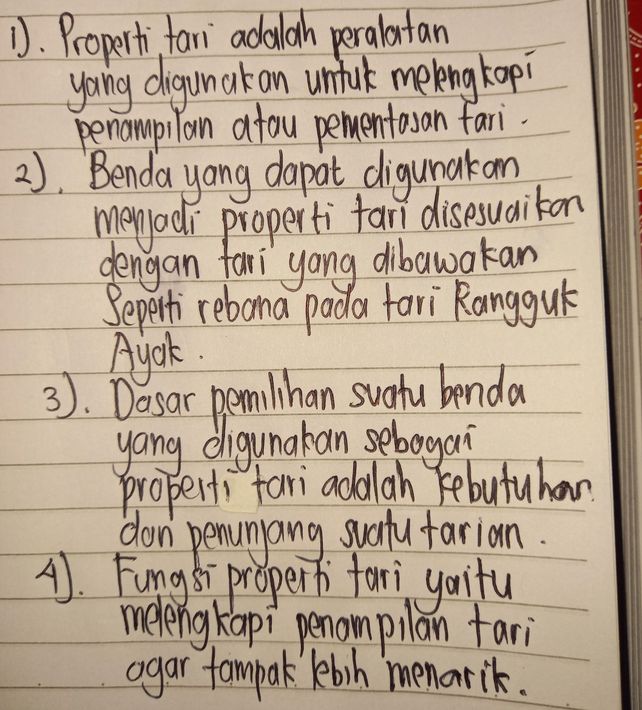 1). Properti tari adalah peralatan
yang digunakan untuk melengkapi
penampilan atau pementasan tari.
2). Benda yang dapat digunakan
menjadi properti tari disesuaikan
dengan tari yang dibawakan
Seperti rebana pada tari Rangguk
Ayak.
3). Dasar pemilihan suatu benda
yang digunakan sebagai
properti tari adalah kebutuhan
dan penunjang suatu tarian.
4). Fungsi properti tari yaitu
melengkapi penampilan tari
agar tampak lebih menarik.